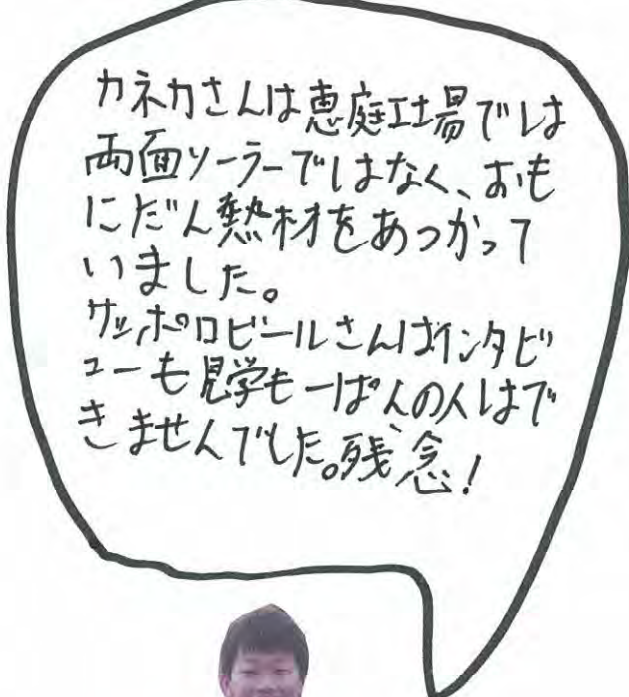 カネカさんは恵庭工場では
両面ソーラーではなく、おも
にだん熱材をあつかって
いました。
サッポロビールさんはインタビ
ューも見学も一ぱんの人はで
きませんでした。残念!